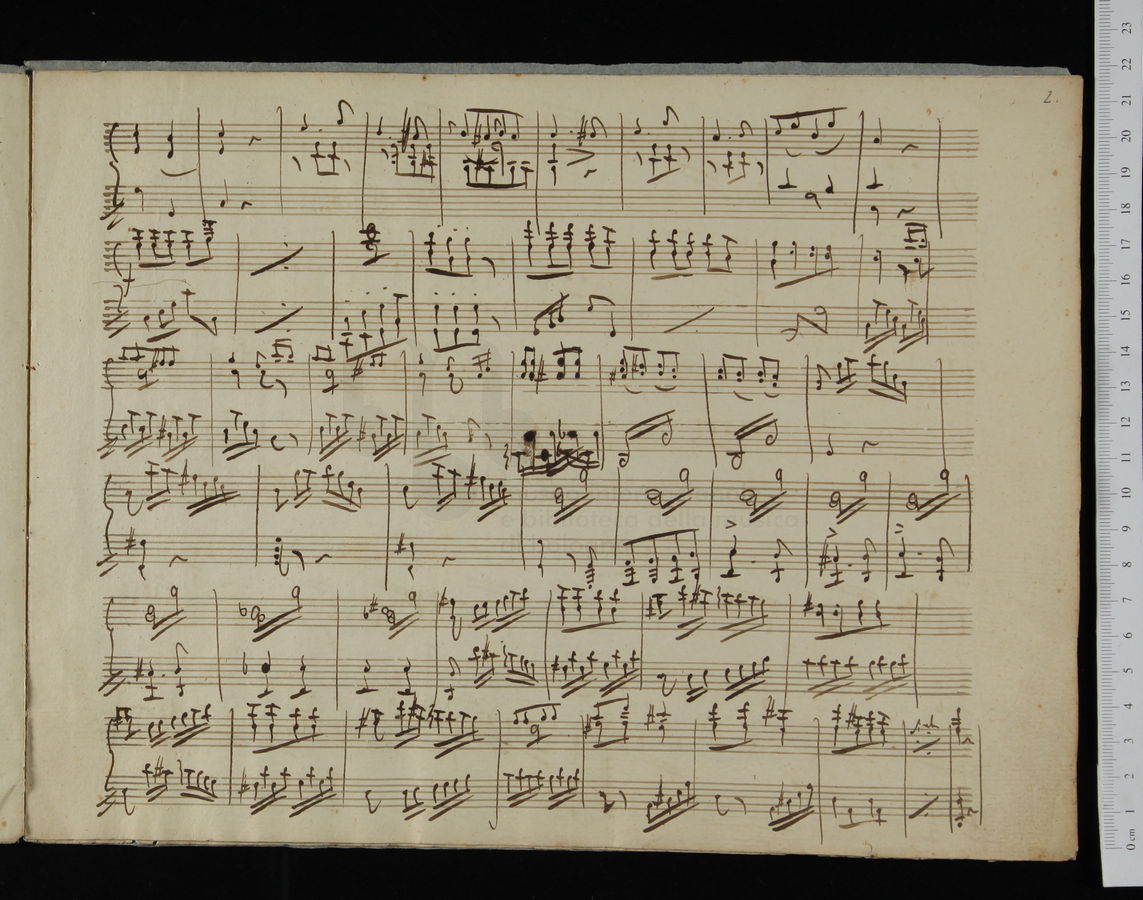 2.
e biblioteca della musica
23
22
21
20
19
18
17
16
15
14
13
12
11
10
9
8
7
6
5
4
3
2
1
0 cm